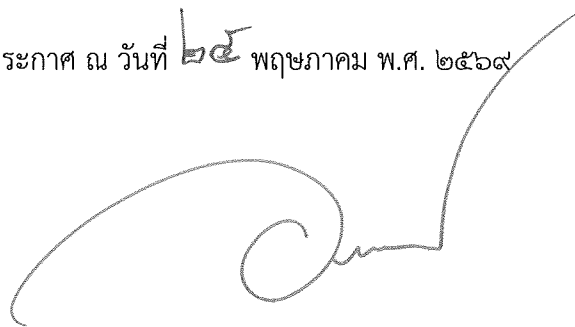 ระกาศ ณ วันที่ ๒๕ พฤษภาคม พ.ศ. ๒๕๖๙